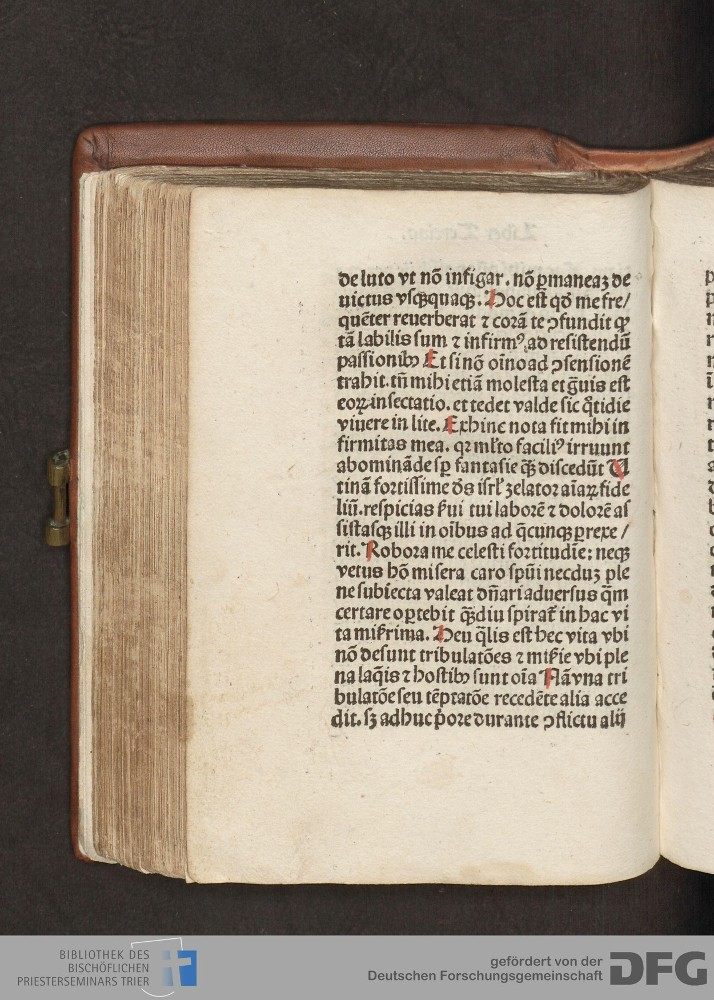 de luto vt nō infigar. nō ꝑmaneaꝫ de
uictus vsꝙquaqꝫ. Hoc est qd̓ me fre/
quēter reuerberat ⁊ corā te ↄfundit ꝙ
tā labilis sum ⁊ infirmꝰ ad resistendū
passionibꝫ Et si nō oīno ad ↄsensionē
trahit. tñ mihi etiā molesta et g̃uis est
eoꝝ insectatio. et tedet valde sic q̊tidie
viuere in lite. Exhinc nota fit mihi in
firmitas mea. qꝛ ml̓to faciliꝰ irruunt
abomināde sꝑ fantasie qꝫ̃ discedūt U
tinā fortissime d̄s isrl̓ zelator aīaꝝ fide
liū. respicias ẜui tui laborē ⁊ dolorē as
sistasqꝫ illi in oībus ad q̄cunqꝫ ꝑrexe /
rit. Robora me celesti fortitudīe: neqꝫ
vetus hō misera caro spūi necduꝫ ple
ne subiecta valeat dn̄ari aduersus quā
certare oꝑtebit qꝫ̃diu spirat̄ in hac vi
ta miẜrima. Heu q̄lis est hec vita vbi
nō desunt tribulatōes ⁊ miẜie vbi ple
na laq̄is ⁊ hostibꝫ sunt oīa Nā vna tri
bulatōe seu tēptatōe recedēte alia acce
dit. sꝫ adhuc p̓ore durante ↄflictu alij
BIBLIOTHEK DES
BISCHÖFLICHEN
PRIESTERSEMINARS TRIER
gefördert von der
Deutschen Forschungsgemeinschaft
DFG